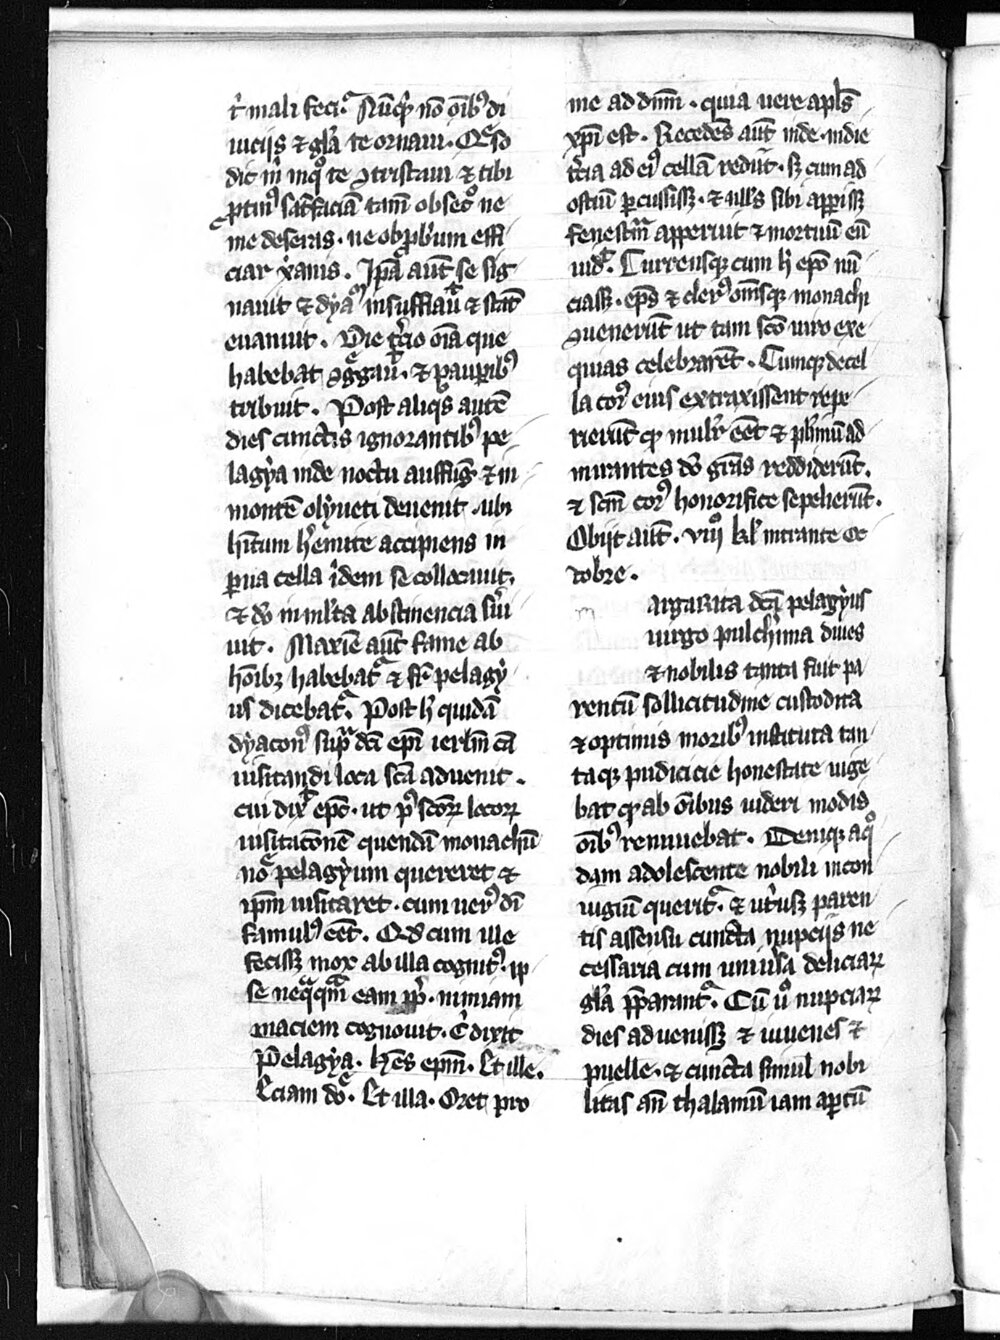 t̄ mali feci. Nūq̄ nō oīb⁹ di
uicijs ⁊ gl̄a te ornaui. Q̄so
dic m̄ in q̊ te ꝯtristaui ⁊ tibi
ꝓtin⁹ satffaciā tam̄ obsec̊ ne
me deseras. ne obꝓbrium effi
ciar xp̄ianis. Ip̄a aut̄ se sig
nauit ⁊ dyab̄ insufflauit ⁊ stat̄
euanuit. Die t̄cio oīa que
habebat ꝯg̅gauit. ⁊ paup̱ib⁹
tribuit. Post aliq̄s autē
dies cunctis ignorantib⁹ pe
lagya inde noctu auffuḡ ⁊ in
montē olyueti deuenit. ubi
hītum h̓emite accipiens in
p̱ua cella ib̄idem se collocauit.
⁊ dō in ml̓ta abstinencia s̓ui
uit. Maxīe aut̄ fame ab
hōibꝫ habebat̄ ⁊ fr̄ pelagy
us dicebat̄. Post h̓ quidā
dyacon⁹ sup̄ dc̄i ep̄i ierl̄m cā
uisitandi loca sc̄a aduenit.
cui dix̄ ep̄c. ut p⁹ sc̄oꝝ locoꝝ
uisitacōnē quendā monachū
nōe pelagyum quereret ⁊
ip̄m uisitaret. cum uer⁹ dī
famul⁹ eēt. Qd̄ cum ille
fecissꝫ mox ab illa cognit⁹. ip
se neq̄q̄m eam ꝓp̄. nimiam
maciem cognouit. C̄ dixit
Pelagya. H̓es ep̄m. Et ille.
Eciam dn̄e. Et illa. Oret pro
me ad dn̄m. quia uere apl̄s
xp̄i est. Recedēs aut̄ inde. in die
t̄cia ad ei⁹ cellā rediit. sꝫ cum ad
ostiū p̱cussissꝫ. ⁊ null⁹s sibi app̱issꝫ
fenestrā apperuit ⁊ mortuū eū
uid̄. Currensqꝫ cum h̓ ep̄o nū
ciassꝫ. ep̄s ⁊ cler⁹ om̄sqꝫ monachi
ꝯuenerūt ut tam sc̄o uiro exe
quias celebrarēt. Cumqꝫ de cel
la cor⁹ eius extraxissent repe
rierūt ꝙ mulr̄ eēt ⁊ pl̓imū ad
mirantes dō gr̄as reddiderūt.
⁊ sc̄m cor⁹ honorifice sepelierūt.
Obijt aūt. viij̊ kl̓ intrante oc
tobre.
m argarita dc̄a pelagyus
uirgo pulch̓ima diues
⁊ nobilis tanta fuit pa
rentū sollicitudine custodita
⁊ optimis morib⁹ instituta tan
taqꝫ pudicicie honestate uige
bat ꝙ ab oībus uideri modis
oīb⁹ rennuebat. Deniqꝫ a q̊
dam adolescente nobili in con
iugiū querit̄. ⁊ ut̓usqꝫ paren
tis assensu cuncta nupcijs ne
cessaria cum uniu̓sa deliciaꝝ
gl̄a p̄parant̄. Cū ů nupciaꝝ
dies aduenissꝫ ⁊ iuuenes ⁊
puelle. ⁊ cuncta simul nobi
litas an̄ thalamū iam ap̱tū